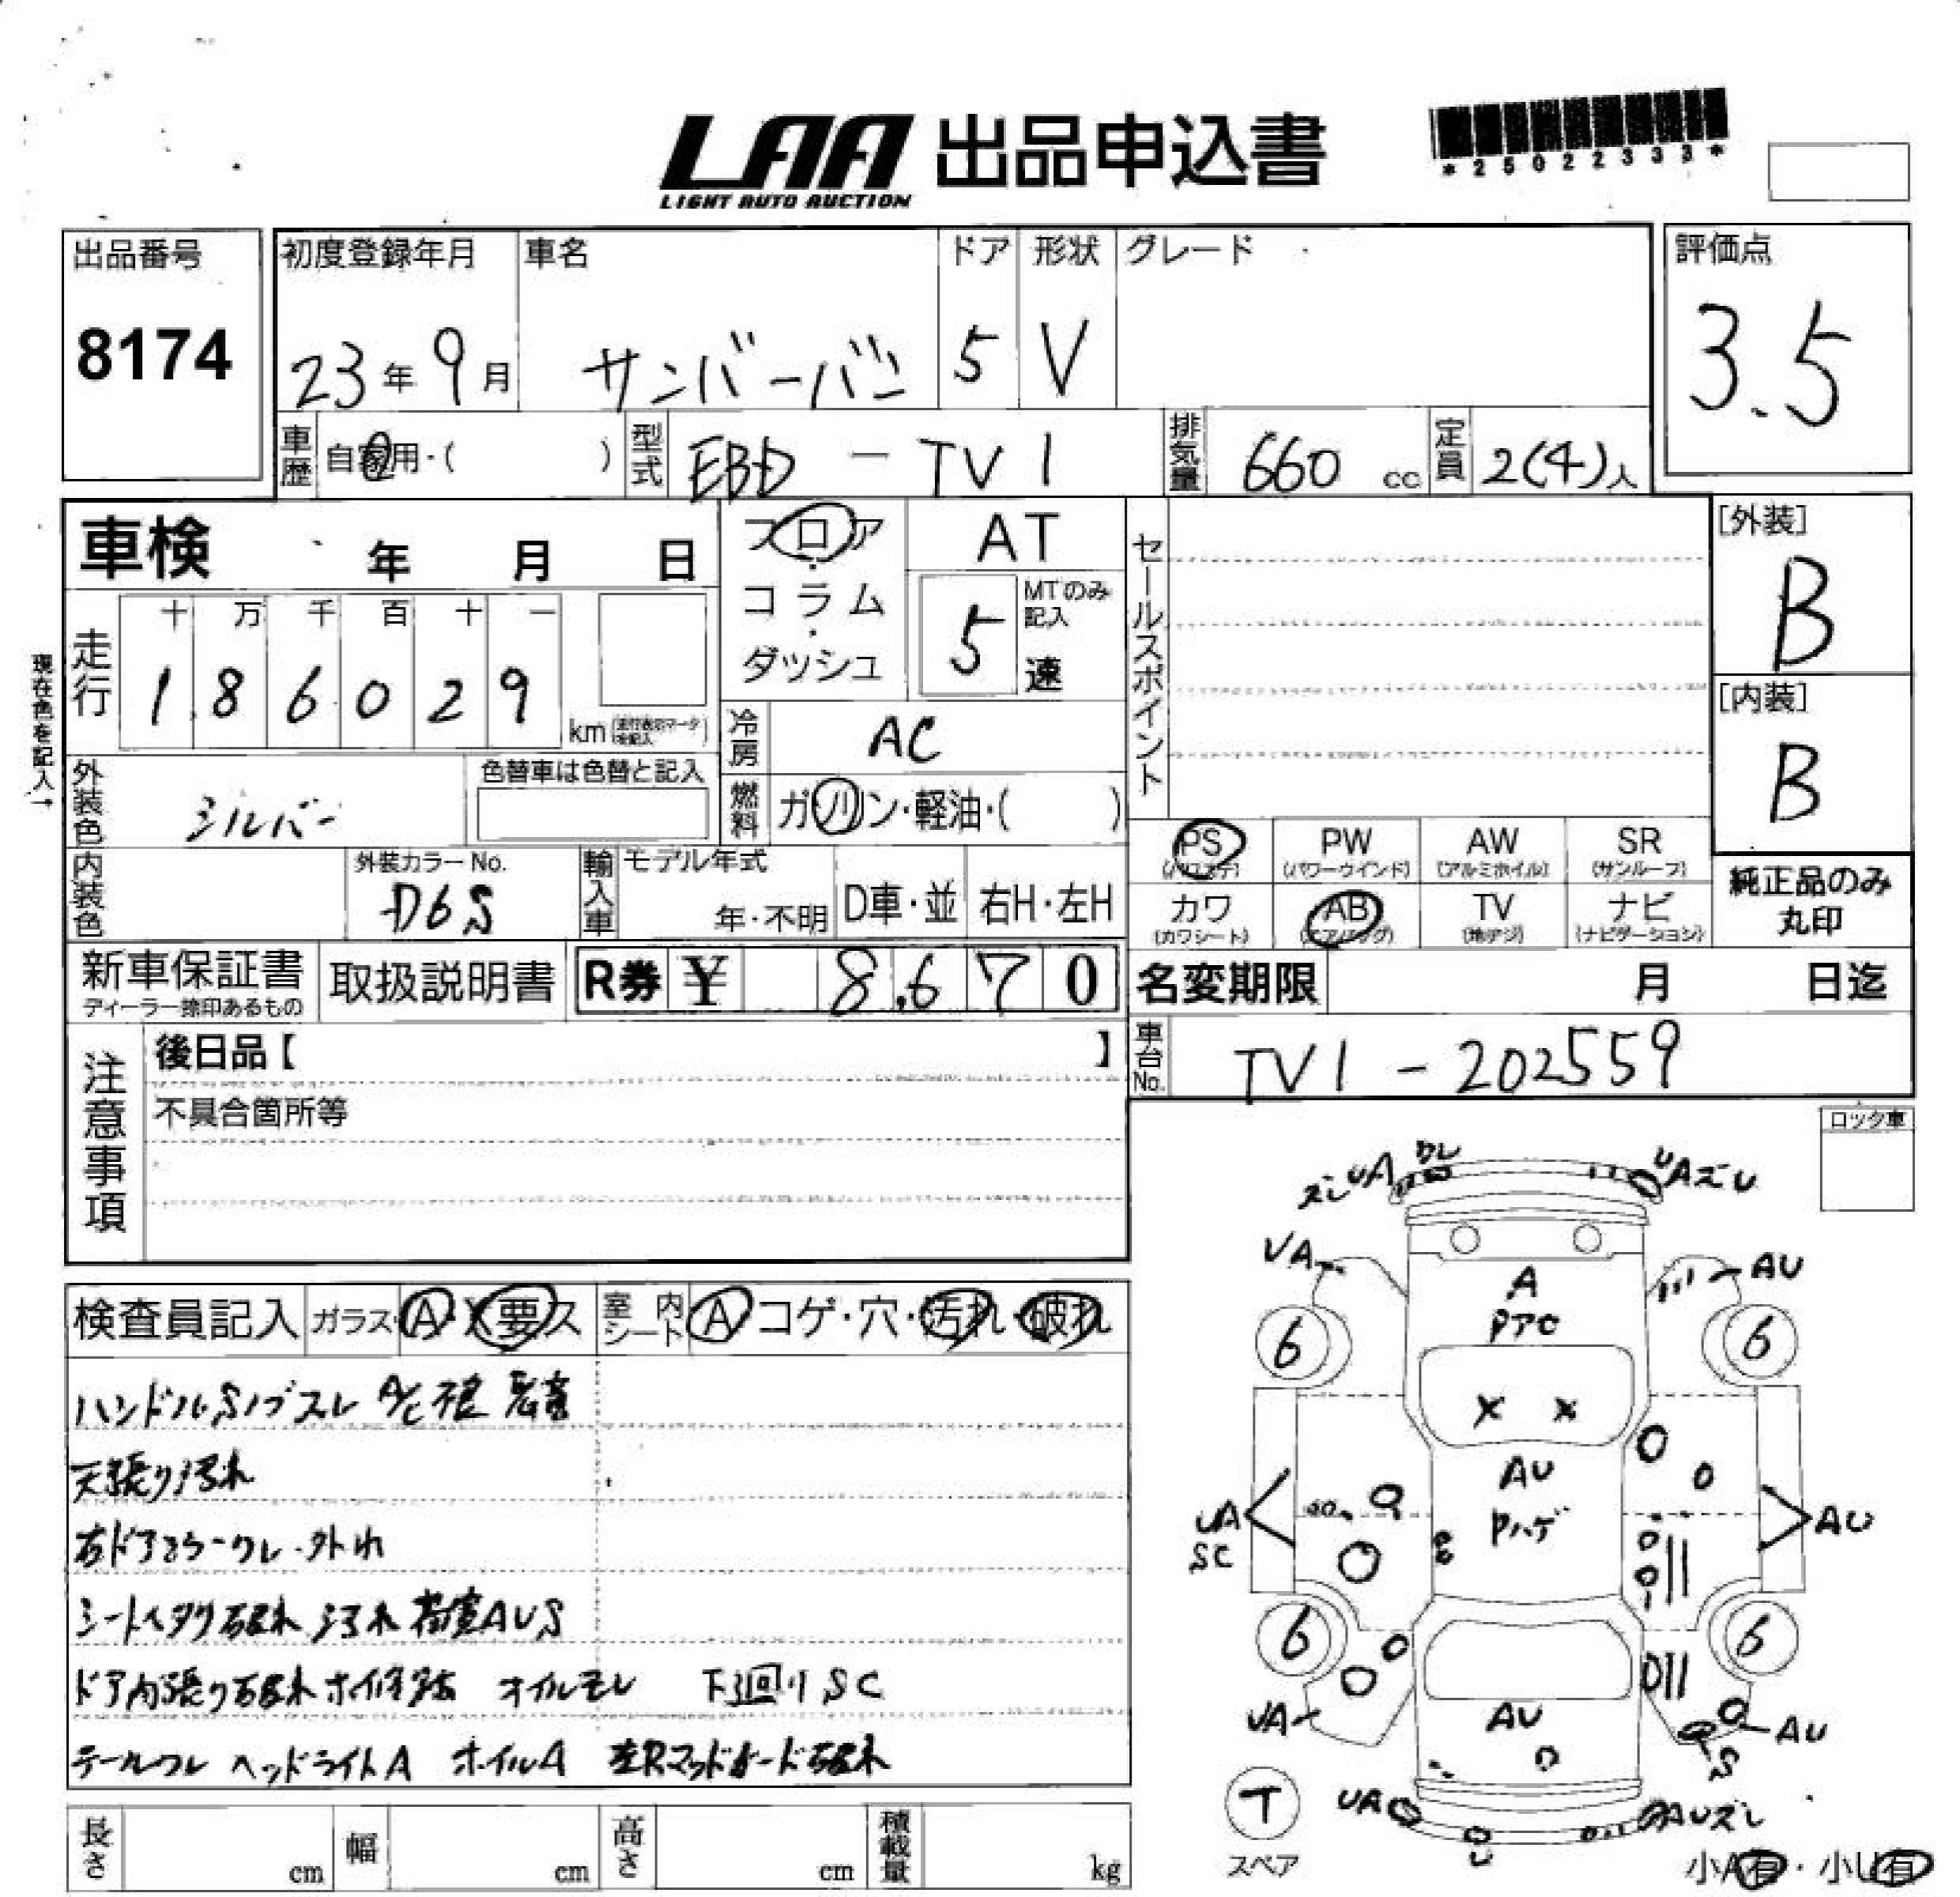 LAA 出品申込書
LIGHT AUTO AUCTION
*25022333*
出品番号
8174
初度登録年月
23年9月
車名
サンバーバン
ドア
5
形状
V
グレード
評価点
3.5
車歴 自家用・( )
型式 EBD - TV1
排気量 660 cc
定員 2(4)人
車検 年 月 日
フロア・コラム・ダッシュ
AT
MTのみ記入
5 速
セールスポイント
[外装]
B
[内装]
B
現在色を記入→
走行
十 万 千 百 十 一
1 8 6 0 2 9 km
冷房 AC
外装色 シルバー
色替車は色替と記入
燃料 ガソリン・軽油・( )
内装色
外装カラーNo.
D6S
輸入車
モデル年式
年・不明
D車・並
右H・左H
PS (パワステ)
PW (パワーウインド)
AW (アルミホイル)
SR (サンルーフ)
カワ (カワシート)
AB (エアバッグ)
TV (地デジ)
ナビ (ナビゲーション)
純正品のみ丸印
新車保証書
ディーラー捺印あるもの
取扱説明書
R券 ¥ 8,670
名変期限 月 日迄
注意事項
後日品【 】
不具合箇所等
車台No. TV1-202559
ロック車
検査員記入
ガラス A・X要ス
室内シート A コゲ・穴・汚れ・破れ
ハンドル Sノブスレ A/C
天張り汚れ
右ドアミラーワレ・外れ
シートイタリ破れ 汚れ 荷室AUS
ドア内張り破れ オイルモレ 下廻りSC
テールワレ ヘッドライトA ホイルA 左Rマッドガード破れ
UA ワレ
UAズレ
UA
AU
A
6
6
X X
AU
Pハゲ
UA
SC
AU
6
6
UA
AU
AU
S
T
スペア
UA
AUズレ
U
小A有・小U有
長さ cm
幅 cm
高さ cm
積載量 kg